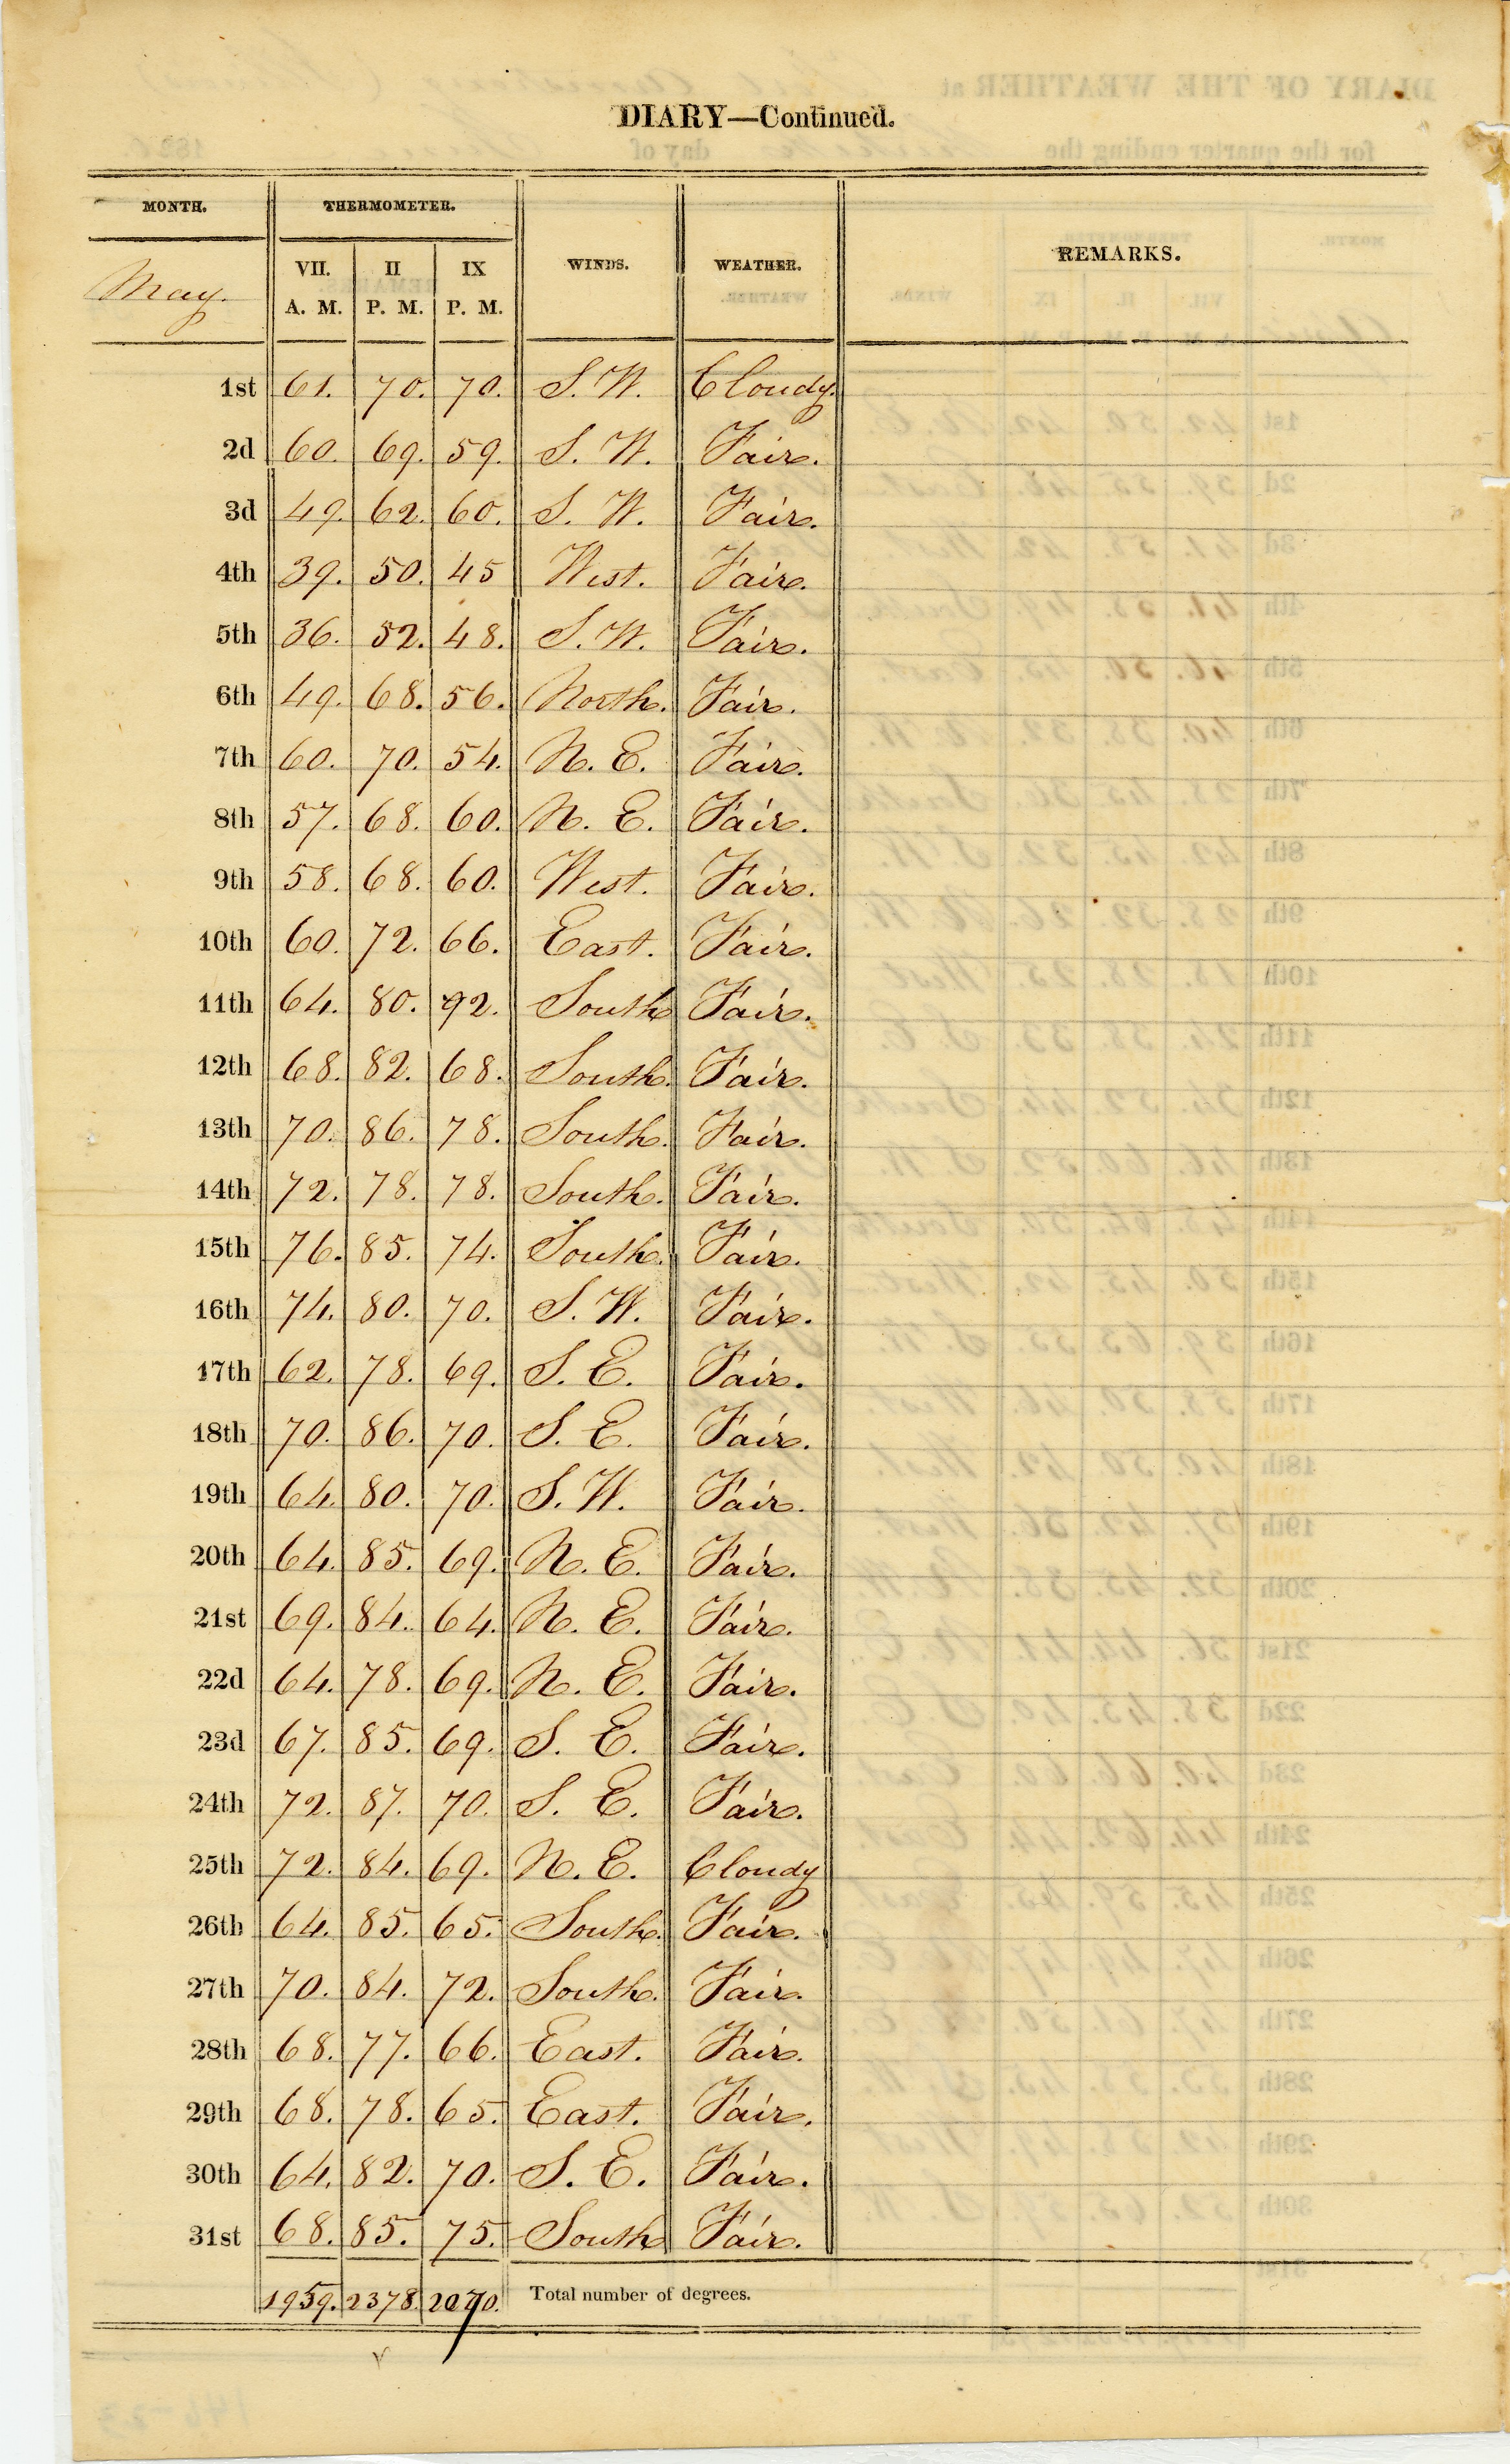 DIARY—Continued.
MONTH. THERMOMETER. WINDS. WEATHER. REMARKS.
May. VII. A. M. II P. M. IX P. M.
1st 61. 70. 70. S. W. Cloudy.
2d 60. 69. 59. S. W. Fair.
3d 49. 62. 60. S. W. Fair.
4th 39. 50. 45 West. Fair.
5th 36. 52. 48. S. W. Fair.
6th 49. 68. 56. North. Fair.
7th 60. 70. 54. N. E. Fair.
8th 57. 68. 60. N. E. Fair.
9th 58. 68. 60. West. Fair.
10th 60. 72. 66. East. Fair.
11th 64. 80. 92. South Fair.
12th 68. 82. 68. South. Fair.
13th 70. 86. 78. South. Fair.
14th 72. 78. 78. South. Fair.
15th 76. 85. 74. South. Fair.
16th 74. 80. 70. S. W. Fair.
17th 62. 78. 69. S. E. Fair.
18th 70. 86. 70. S. E. Fair.
19th 64. 80. 70. S. W. Fair.
20th 64. 85. 69. N. E. Fair.
21st 69. 84. 64. N. E. Fair.
22d 64. 78. 69. N. E. Fair.
23d 67. 85. 69. S. E. Fair.
24th 72. 87. 70. S. E. Fair.
25th 72. 84. 69. N. E. Cloudy
26th 64. 85. 65. South. Fair.
27th 70. 84. 72. South. Fair.
28th 68. 77. 66. East. Fair.
29th 68. 78. 65. East. Fair.
30th 64. 82. 70. S. E. Fair.
31st 68. 85. 75. South Fair.
1959. 2378. 2070. Total number of degrees.